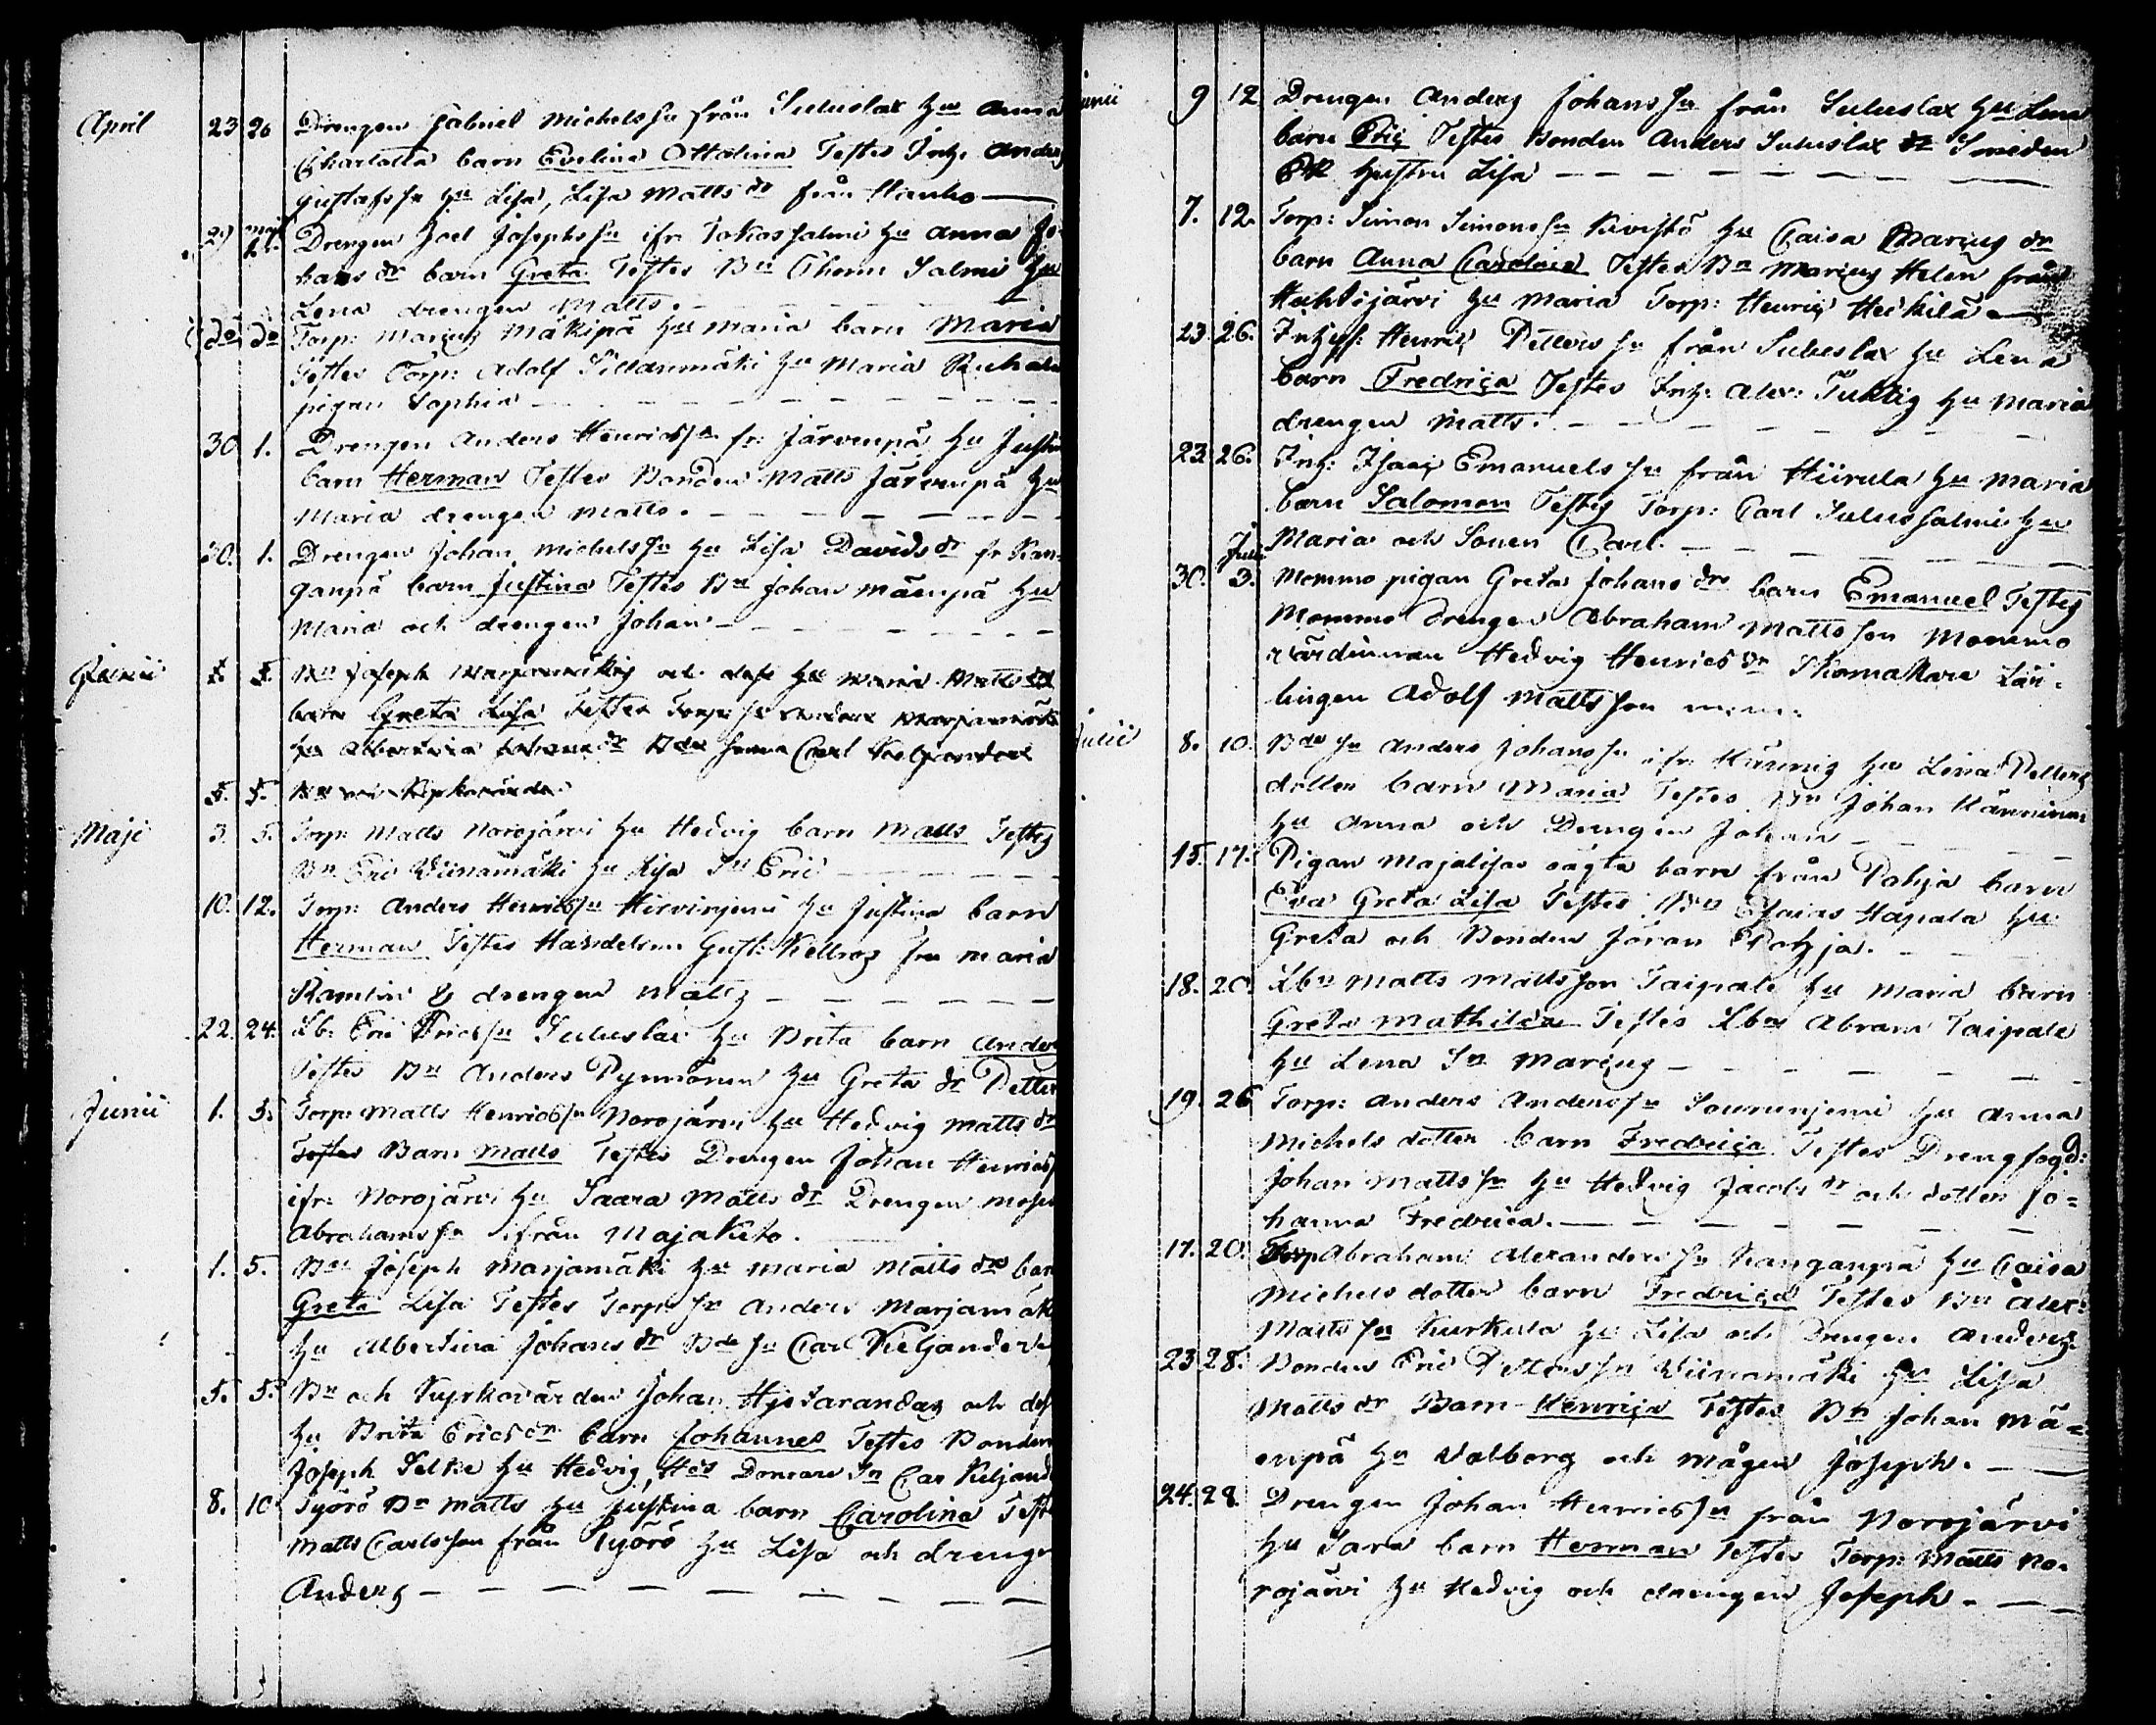 April 23 26 Drengen Gabriel Michels sn från Suluslax hu Anna
Charlotta barn Evelina Ottolina Testes Inh: Anders
Gustafs sn hu Lisa, Lisa Matts dr från
29 maji 1. Drengen Joel Josephs sn ifr. Jokos salmi hu Anna Jo
hans dr barn Greta Testes Bn Thom Salmi hu
Lena drengen Matts.
do do Torp: Marcus Mäkipä hu Maria barn Maria
Testes Torp: Adolf Sillanmäki hu Maria
pigan Sophia
30 1. Drengen Anders Henrics sn fr. Järvenpä hu Justina
barn Herman Testes Bonden Matts Järvenpä hu
Maria drengen Matts.
30. 1. Drengen Johan Michels sn hu Lisa Davids dr fr Kan-
ganpä barn Justina Testes Bn Johan Mäenpä hu
Maria och drengen Johan
Junii 1. 5. Bn Joseph Marjamäki och dess hu Maria Matts dr
barn Greta Lisa Testes Torp: sn Anders Marjamäki
hu Albertina Johans dr Bde sonen Carl Keljander
5. 5. Bn och Kyrkovärden
Maji 3. 5. Torp: Matts Norojärvi hu Hedvig barn Matts Testes
Bn Eric Viinamäki hu Lisa Sn Eric
10. 12. Torp: Anders Henrics sn Hirvinjemi hu Justina barn
Herman Testes Handelsm: Gust: fru Maria
Ramlin & drengen Matts
22. 24. Lb: Eric Erics sn Suluslax hu Brita barn Anders
Testes Bn Anders Pynnönen hu Greta dr Petter
Junii 1. 5. Torp: Matts Henrics sn Norojärvi hu Hedvig Matts dr
Testes Barn Matts Testes Drengen Johan Henrics
ifr. Norojärvi hu Saara Matts dr Drengen Moses
Abrahams sn ifrån Majakito.
1. 5. Bn Joseph Marjamäki hu Maria Matts dr barn
Greta Lisa Testes Torp: sn Anders Marjamäki
hu Albertina Johans dr Bde sn Carl Keljander
5. 5. Bn och Kyrkovärden Johan och dess
hu Brita Erics dr barn Johannes Testes Bonden
Joseph Silke hu Hedvig, Domare Sn Car Keljand
8. 10 Työrö Bn Matts hu Justina barn Carolina Test
Matts Carlsson från Työrö hu Lisa och drengen
Anders
Junii 9 12 Drengen Anders Johans sn från Suluslax hu Lena
barn Eric Testes Bonden Anders Suluslax Smeden
hustru Lisa
7. 12. Torp: Simon Simons sn Kivistö hu Caisa Marcus dr
barn Anna Carolina Testes Bn Marcus Helen från
Huhtijärvi hu Maria Torp: Henric Heikilä
23. 26. Inhys: Henric Petters sn från Suluslax hu Lena
barn Fredrica Testes Inh: Alex: Tuhlig hu Maria
drengen Matts.
23. 26. Inh: Isaac Emanuels sn från Hiirula hu Maria
barn Salomon Testes Torp: Carl Sulussalmi hu
Maria och Sonen Carl.
30. Julii 3. Mommo pigan Greta Johans dr barn Emanuel Testes
Mommo drengen Abraham Mattsson Mommo
värdinnan Hedvig Henrics dr Skomakare Lär-
lingen Adolf Mattsson
Julii 8. 10. Bde sn Anders Johans sn ifr. hu Lena Petters
dotter barn Maria Testes Bn Johan Hänninen
hu Anna och Drengen Johan
15. 17. Pigan Majalisas oägta barn från Pohja barn
Eva Greta Lisa Testes Bn Esaias Hapala hu
Greta och Bonden Jöran Pohja.
18. 20. Lbn Matts Mattsson Taipale hu Maria barn
Greta Mathilda Testes Lbn Abram Taipale
hu Lena Sn Marcus
19. 26 Torp: Anders Anders sn hu Anna
Michels dotter barn Fredrica Testes Drengfogd:
Johan Matts sn hu Hedvig Jacobs dr och dotter Jo=
hanna Fredrica.
17. 20. Torp Abraham Alexanders sn Kanganpä hu Caisa
Michels dotter barn Fredrica Testes Bn Alex:
Matts sn Kurkula hu Lisa och Drengen Anders.
23 28. Bonden Eric Petters sn Viinamäki hu Lisa
Matts dr Barn Henrica Testes Bn Johan Mä=
enpä hu Valborg och mågen Joseph.
24. 28. Drengen Johan Henrics sn från Norojärvi
hu Sara barn Herman Testes Torp: Matts No-
rojärvi hu Hedvig och drengen Joseph.